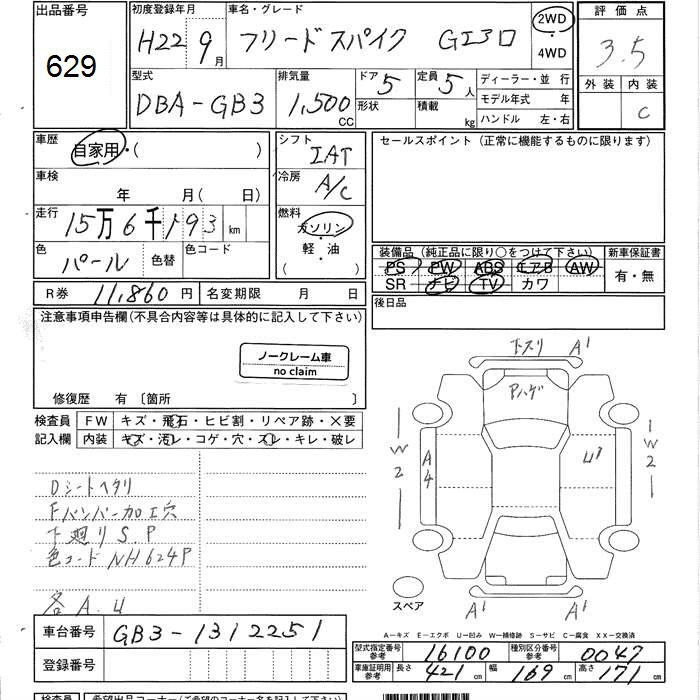 出品番号 初度登録年月 車名・グレード 評価点
629 H22 9月 フリードスパイク GIエロ 2WD 4WD 3.5
型式 排気量 ドア 定員 ディーラー・並行 外装 内装
DBA-GB3 1,500CC 5 5人 モデル年式 年 C
形状 積載 kg ハンドル 左・右
車歴 自家用・( ) シフト IAT セールスポイント(正常に機能するものに限ります)
車検 年 月( 日) 冷房 A/C
走行 15万6千193km 燃料 ガソリン
色 パール 色替 色コード 軽・油 ( )
装備品(純正品に限り○をつけて下さい) 新車保証書
PS PW ABS エアB AW 有・無
SR ナビ TV カワ
R券 11,860円 名変期限 月 日 後日品
注意事項申告欄(不具合内容等は具体的に記入して下さい)
ノークレーム車
no claim
修復歴 有 〔箇所 〕
検査員 FW キズ・飛石・ヒビ割・リペア跡・×要
記入欄 内装 キズ・汚レ・コゲ・穴・スレ・キレ・破レ
Dシートヘタリ
Fバンパー加工穴
下廻りS.P
色コードNH624P
各A.U
下スリ A1
Aハゲ
W2 A4 U3 W2
スペア A1 A1
車台番号 GB3-1312251
登録番号
A-キズ E-エクボ U-凹み W-補修跡 S-サビ C-腐食 XX-交換済
型式指定番号 参考 16100 種別区分番号 参考 0047
車庫証明用 参考 長さ 421cm 幅 169cm 高さ 171cm
検査員 希望出品コーナー(ご希望のコーナー名をご記入下さい)